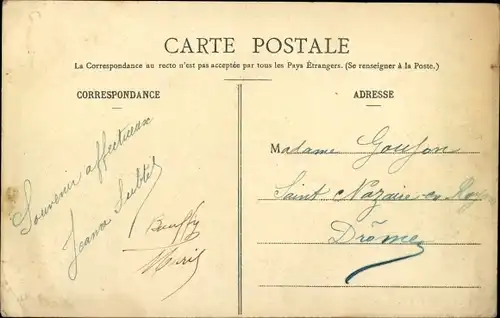 CARTE POSTALE
La Correspondance au recto n'est pas acceptée par tous les Pays Étrangers. (Se renseigner à la Poste.)
CORRESPONDANCE
Souvenir affectueux
Jeanne
ADRESSE
Madame Goujon
Saint Nazaire en Royans
Drôme